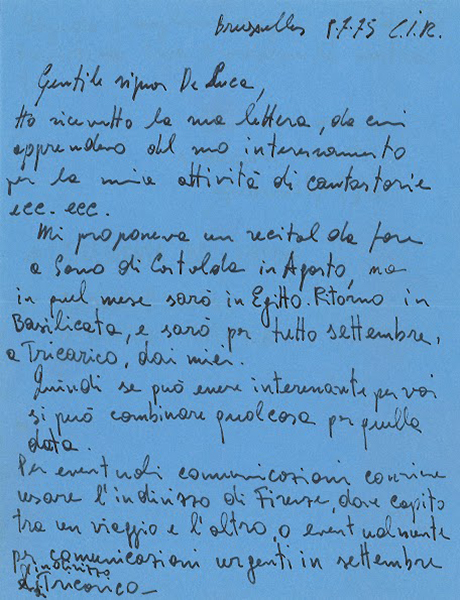 Bruxelles 8.7.75 C.I.R.
Gentile signor De Luca,
Ho ricevuto la sua lettera, da cui
apprendevo del suo interessamento
per la mia attività di cantastorie
ecc. ecc.
Mi proponeva un recital da fare
a Sasso di Castalda in Agosto, ma
in quel mese sarò in Egitto. Ritorno in
Basilicata, e sarò per tutto settembre,
a Tricarico, dai miei.
Quindi se può essere interessante per voi
si può combinare qualcosa per quella
data.
Per eventuali comunicazioni conviene
usare l'indirizzo di Firenze, dove capito
tra un viaggio e l'altro, o eventualmente
per comunicazioni urgenti in settembre
indirizzo
Tricarico